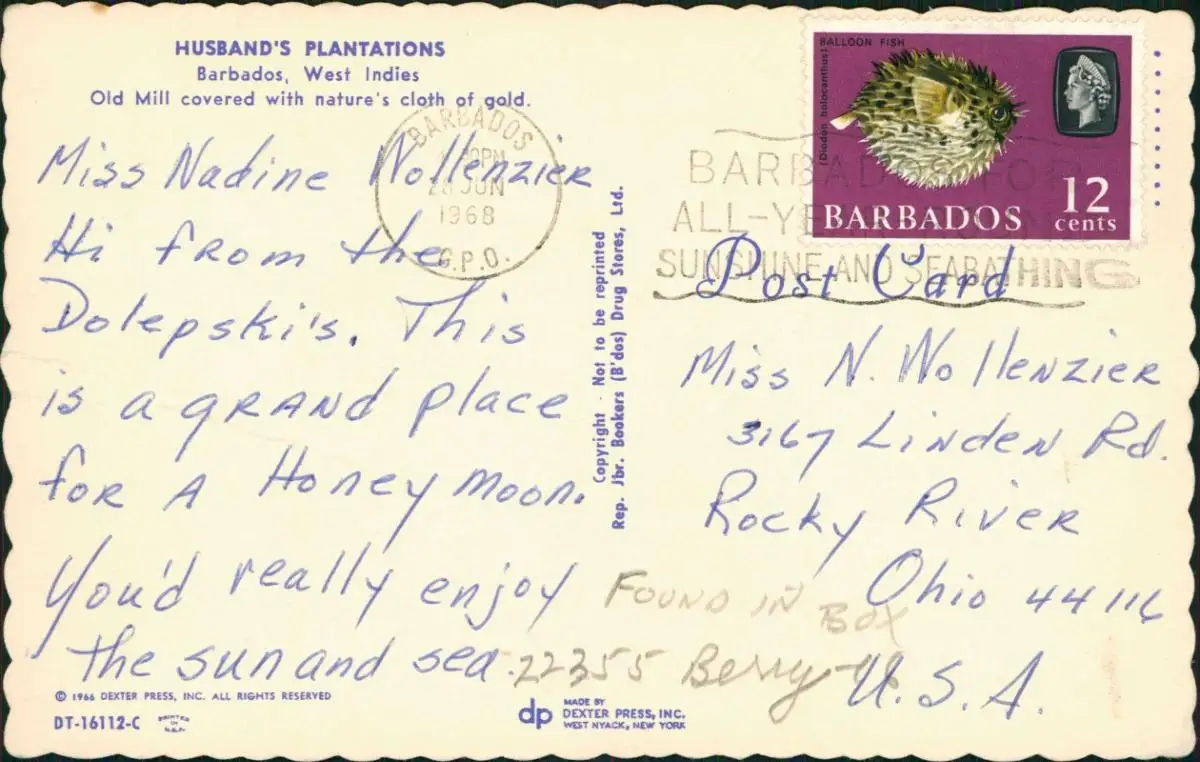 HUSBAND'S PLANTATIONS
Barbados, West Indies
Old Mill covered with nature's cloth of gold.
Miss Nadine Wollenzier
Hi from the
Dolepski's. This
is a grand place
for a Honey moon.
You'd really enjoy
the sun and sea.
© 1966 DEXTER PRESS, INC. ALL RIGHTS RESERVED
DT-16112-C
PRINTED
IN
U.S.A.
BARBADOS
PM
JUN
1968
G.P.O.
Copyright - Not to be reprinted
Rep. Jbr. Bookers (B'dos) Drug Stores, Ltd.
dp
MADE BY
DEXTER PRESS, INC.
WEST NYACK, NEW YORK
BALLOON FISH
(Diodon holocanthus)
BARBADOS
12
cents
BARBADOS FOR
ALL-YEAR
SUNSHINE AND SEABATHING
Post Card
Miss N. Wollenzier
3167 Linden Rd.
Rocky River
Ohio 44116
U.S.A.
FOUND IN BOX
22355 Berry